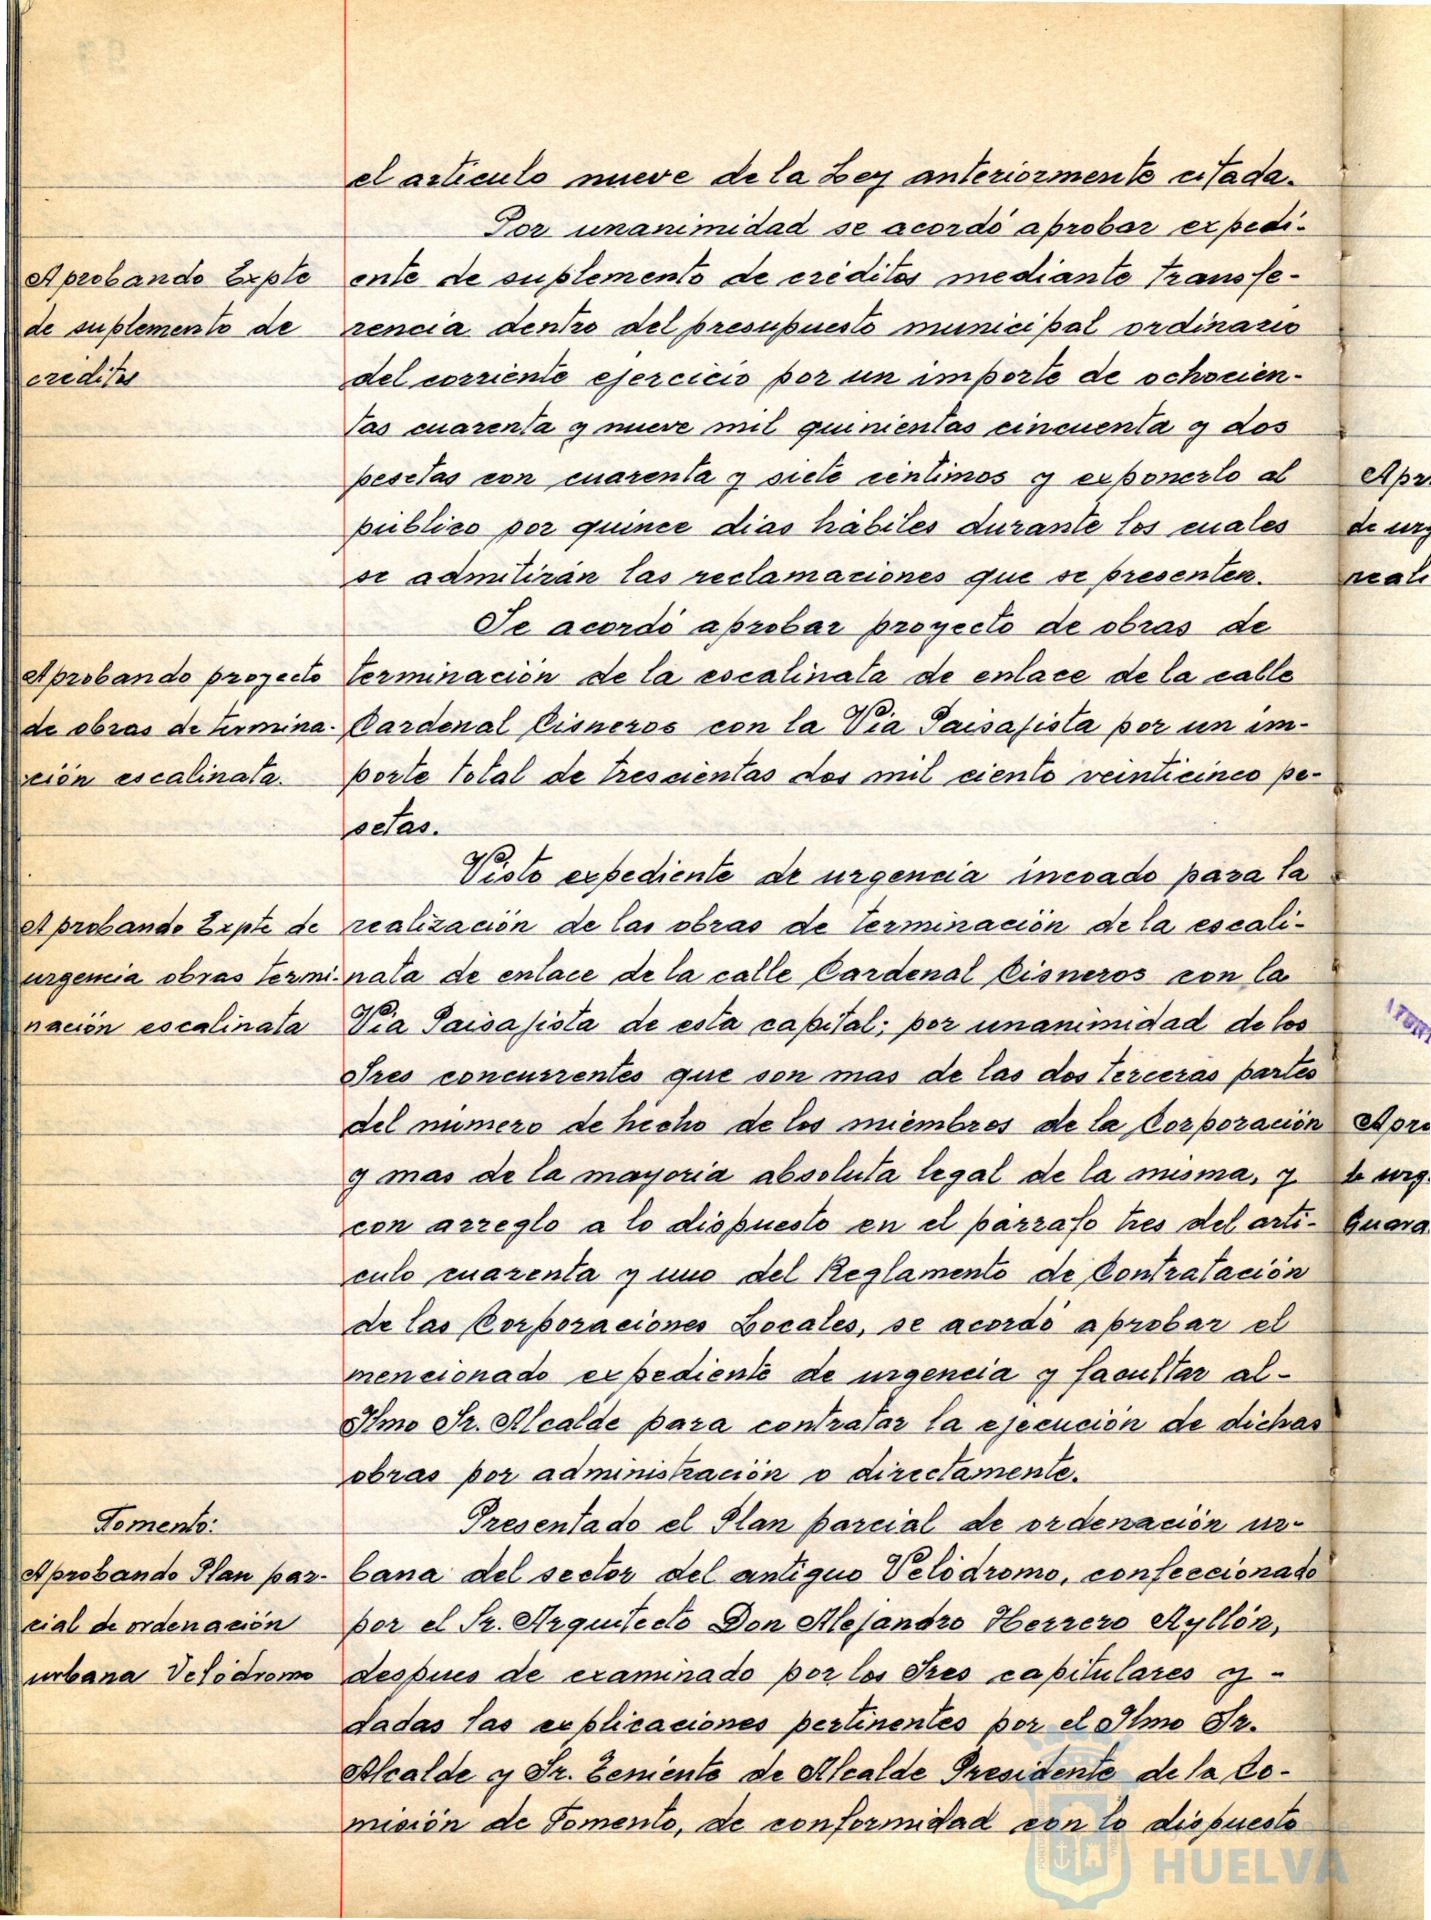 el articulo nueve de la Ley anteriormente citada.
Por unanimidad se acordó aprobar expedi-
Aprobando Expte
de suplemento de
creditos
ente de suplemento de créditos mediante transfe-
rencia dentro del presupuesto municipal ordinario
del corriente ejercicio por un importe de ochocien-
tas cuarenta y nueve mil quinientas cincuenta y dos
pesetas con cuarenta y siete céntimos y exponerlo al
público por quince dias hábiles durante los cuales
se admitirán las reclamaciones que se presenten.
Se acordó aprobar proyecto de obras de
Aprobando proyecto
de obras de termina-
ción escalinata.
terminación de la escalinata de enlace de la calle
Cardenal Cisneros con la Via Paisajista por un im-
porte total de trescientas dos mil ciento veinticinco pe-
setas.
Visto expediente de urgencia incoado para la
Aprobando Expte de
urgencia obras termi-
nación escalinata
realización de las obras de terminación de la escali-
nata de enlace de la calle Cardenal Cisneros con la
Via Paisajista de esta capital; por unanimidad de los
Sres concurrentes que son mas de las dos terceras partes
del número de hecho de los miembros de la Corporación
y mas de la mayoria absoluta legal de la misma, y
con arreglo a lo dispuesto en el párrafo tres del arti-
culo cuarenta y uno del Reglamento de Contratación
de las Corporaciones Locales, se acordó aprobar el
mencionado expediente de urgencia y facultar al-
Ilmo Sr. Alcalde para contratar la ejecución de dichas
obras por administración o directamente.
Fomento:
Aprobando Plan par-
cial de ordenación
urbana Velódromo
Presentado el Plan parcial de ordenación ur-
bana del sector del antiguo Velódromo, confeccionado
por el Sr. Arquitecto Don Alejandro Herrero Ayllón,
despues de examinado por los Sres capitulares y -
dadas las explicaciones pertinentes por el Ilmo Sr.
Alcalde y Sr. Teniente de Alcalde Presidente de la Co-
misión de Fomento, de conformidad con lo dispuesto
Apr
de urg
reali
Apro
de urg.
Guara
HUELVA